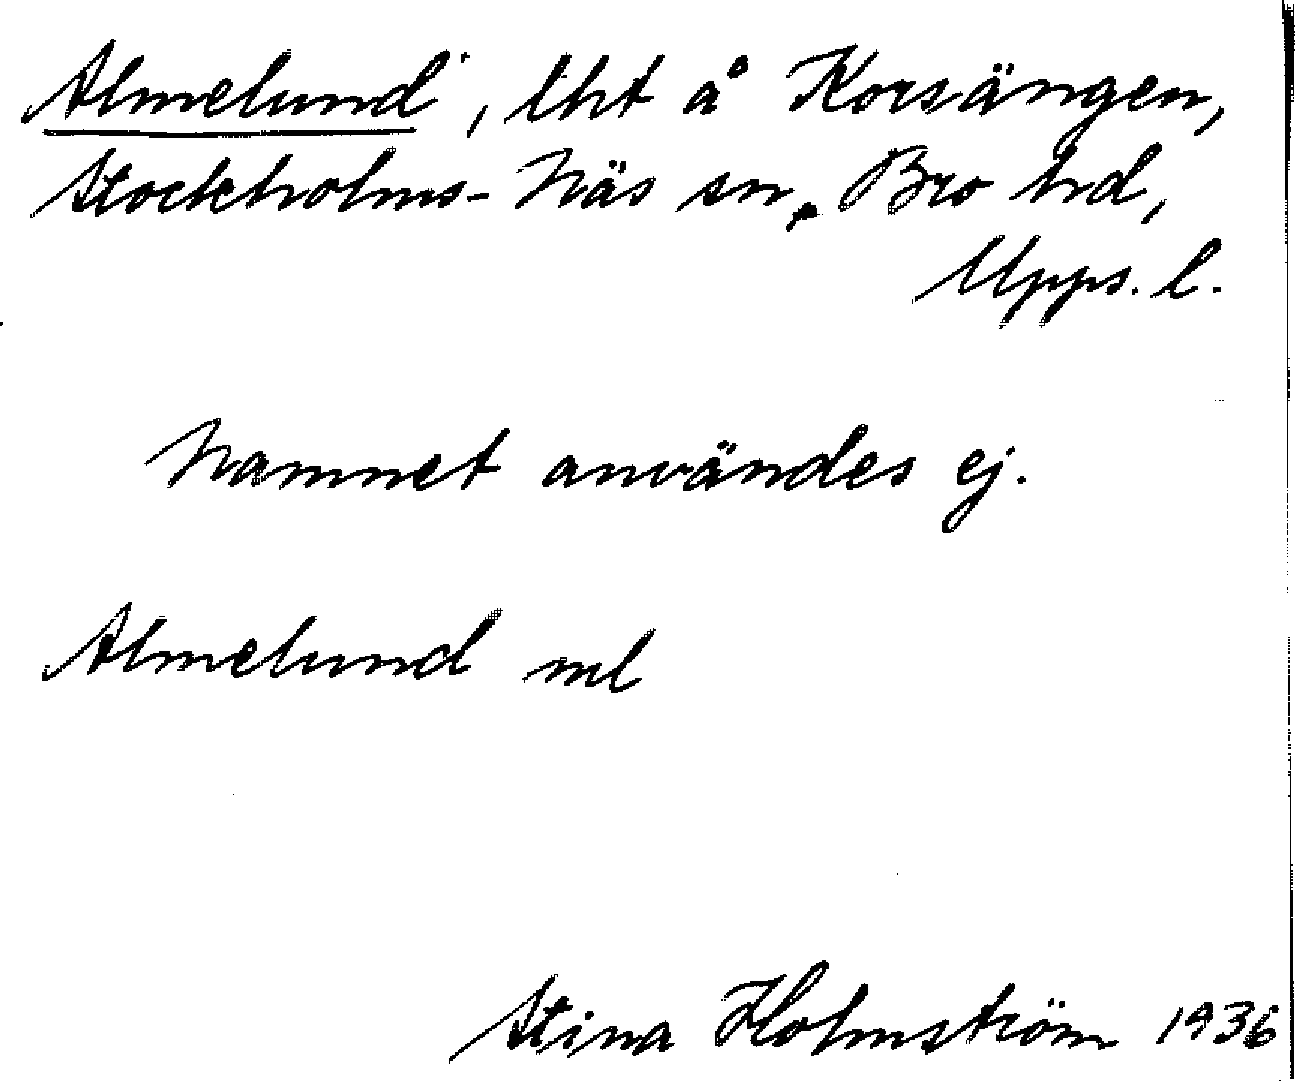 Almelund, lht å Korsängen,
Stockholms-Näs sn, Bro hd,
Upps. l.
Namnet användes ej.
Almelund ml
Stina Holmström 1936